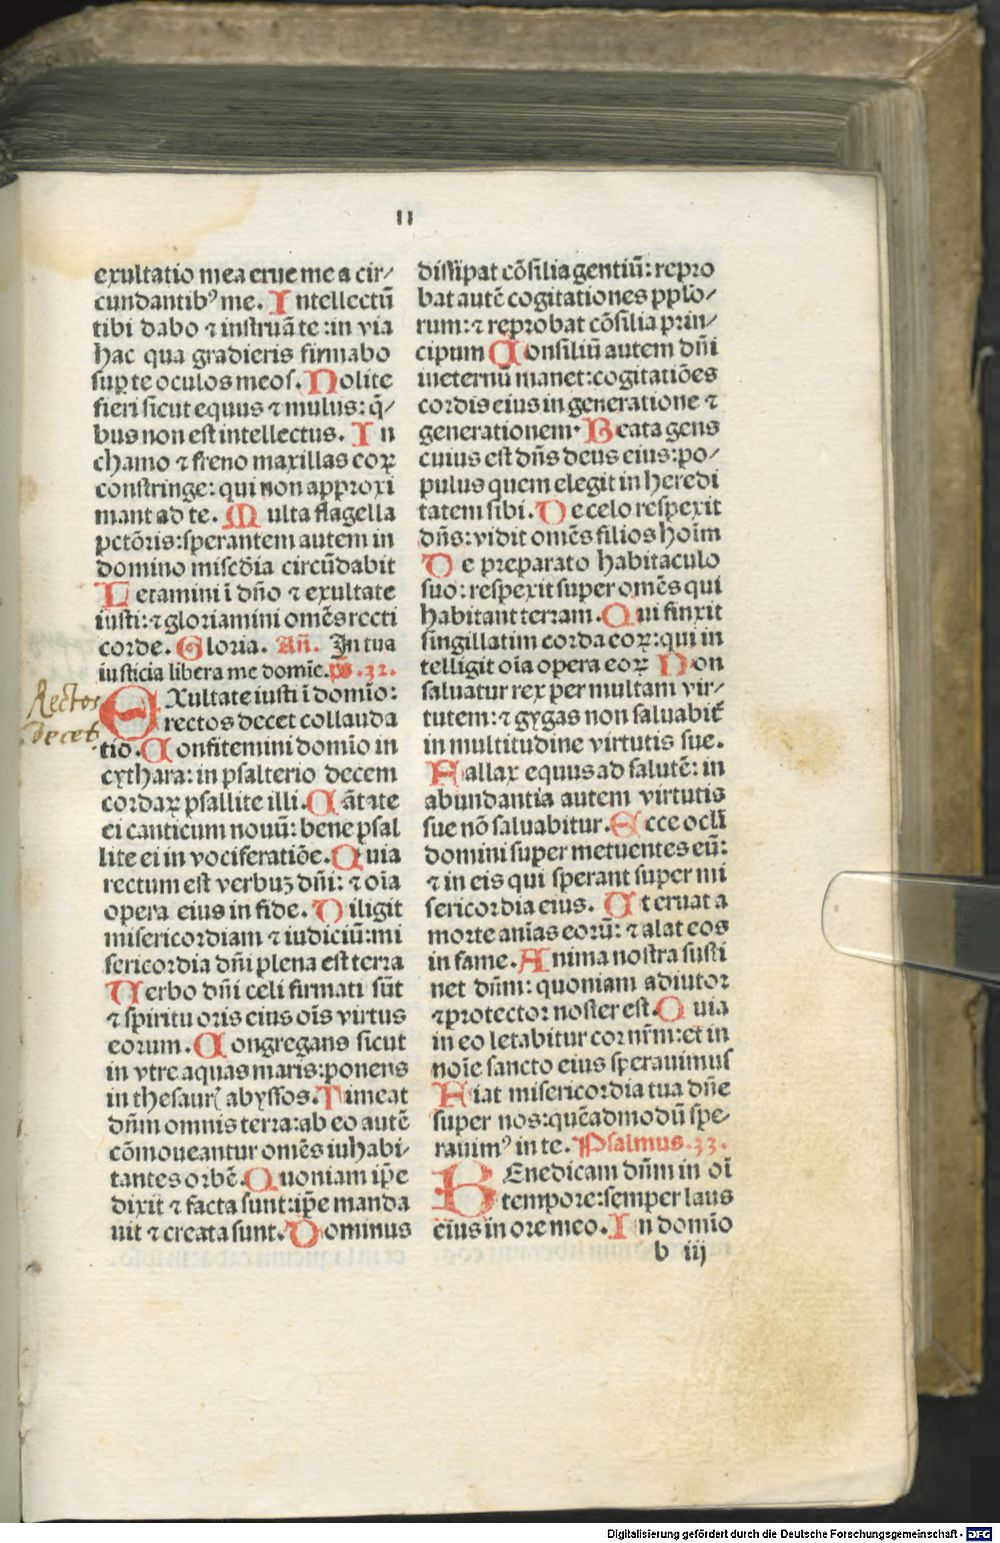 11
exultatio mea erue me a cir⸗
cundantibꝰ me. Intellectū
tibi dabo ⁊ instruā te: in via
hac qua gradieris firmabo
suꝑ te oculos meos. Nolite
fieri sicut equus ⁊ mulus: q̄⸗
bus non est intellectus. In
chamo ⁊ freno maxillas coꝝ
constringe: qui non approxi
mant ad te. Multa flagella
pctōris: sperantem autem in
domino miscdia circūdabit
Letamini ī dn̄o ⁊ exultate
iusti: ⁊ gloriamini omēs recti
corde. Gloria. Añ. In tua
iusticia libera me domīe. ps .32.
Rectos
decet
EXultate iusti ī domīo:
rectos decet collauda
tio. Confitemini domīo in
cythara: in psalterio decem
cordaꝝ psallite illi. Cātate
ei canticum nouū: bene psal
lite ei in vociferatiōe. Quia
rectum est verbuꝫ dn̄i: ⁊ oīa
opera eius in fide. Diligit
misericordiam ⁊ iudiciū: mi
sericordia dn̄i plena est terra
Verbo dn̄i celi firmati sūt
⁊ spiritu oris eius oīs virtus
eorum. Congregans sicut
in vtre aquas maris: ponens
in thesaurꝭ abyssos. Timeat
dn̄m omnis terra: ab eo autē
cōmoueantur omēs iuhabi⸗
tantes orbē. Quoniam ip̄e
dixit ⁊ facta sunt: ip̄e manda
uit ⁊ creata sunt. Dominus
dissipat cōsilia gentiū: repro
bat autē cogitationes pplo⸗
rum: ⁊ reprobat cōsilia prin⸗
cipum Consiliū autem dn̄i
ineternū manet: cogitatiōes
cordis eius in generatione ⁊
generationem. Beata gens
cuius est dn̄s deus eius: po⸗
pulus quem elegit in heredi
tatem sibi. De celo respexit
dn̄s: vidit omēs filios hoīm
De preparato habitaculo
suo: respexit super omēs qui
habitant terram. Qui finxit
singillatim corda eoꝝ: qui in
telligit oīa opera eoꝝ Non
saluatur rex per multam vir⸗
tutem: ⁊ gygas non saluabit̄
in multitudine virtutis sue.
Fallax equus ad salutē: in
abundantia autem virtutis
sue nō saluabitur. Ecce oclī
domini super metuentes eū:
⁊ in eis qui sperant super mi
sericordia eius. Ut eruat a
morte anīas eorū: ⁊ alat eos
in fame. Anima nostra susti
net dn̄m: quoniam adiutor
⁊ protector noster est. Quia
in eo letabitur cor nr̄m: et in
noīe sancto eius sperauimus
Fiat misericordia tua dn̄e
super nos: quēadmodū spe⸗
rauimꝰ in te. Psalmus .33.
BEnedicam dn̄m in oī
tempore: semper laus
eius in ore meo. In domīo
b iij
Digitalisierung gefördert durch die Deutsche Forschungsgemeinschaft - DFG